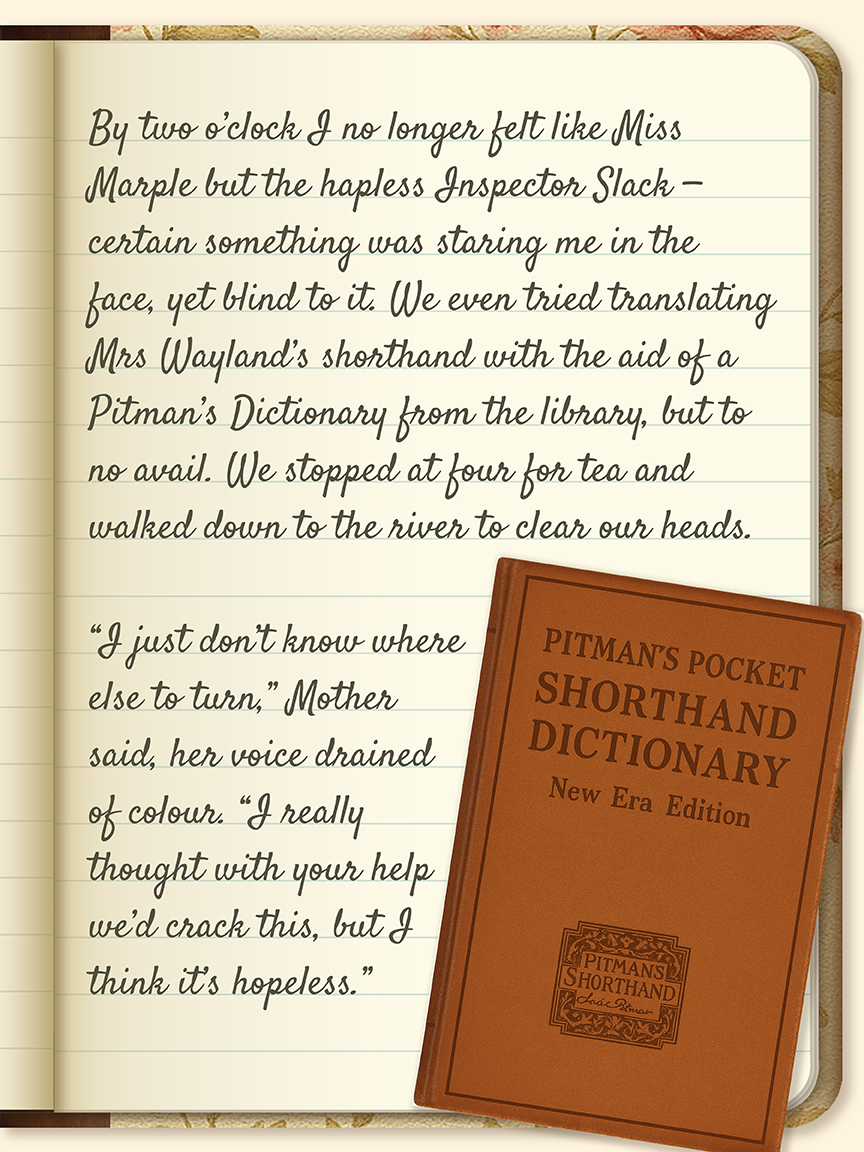 By two o’clock I no longer felt like Miss
Marple but the hapless Inspector Slack –
certain something was staring me in the
face, yet blind to it. We even tried translating
Mrs Wayland’s shorthand with the aid of a
Pitman’s Dictionary from the library, but to
no avail. We stopped at four for tea and
walked down to the river to clear our heads.
“I just don’t know where
else to turn,” Mother
said, her voice drained
of colour. “I really
thought with your help
we’d crack this, but I
think it’s hopeless.”
PITMAN’S POCKET
SHORTHAND
DICTIONARY
New Era Edition
PITMAN’S
SHORTHAND
Isaac Pitman